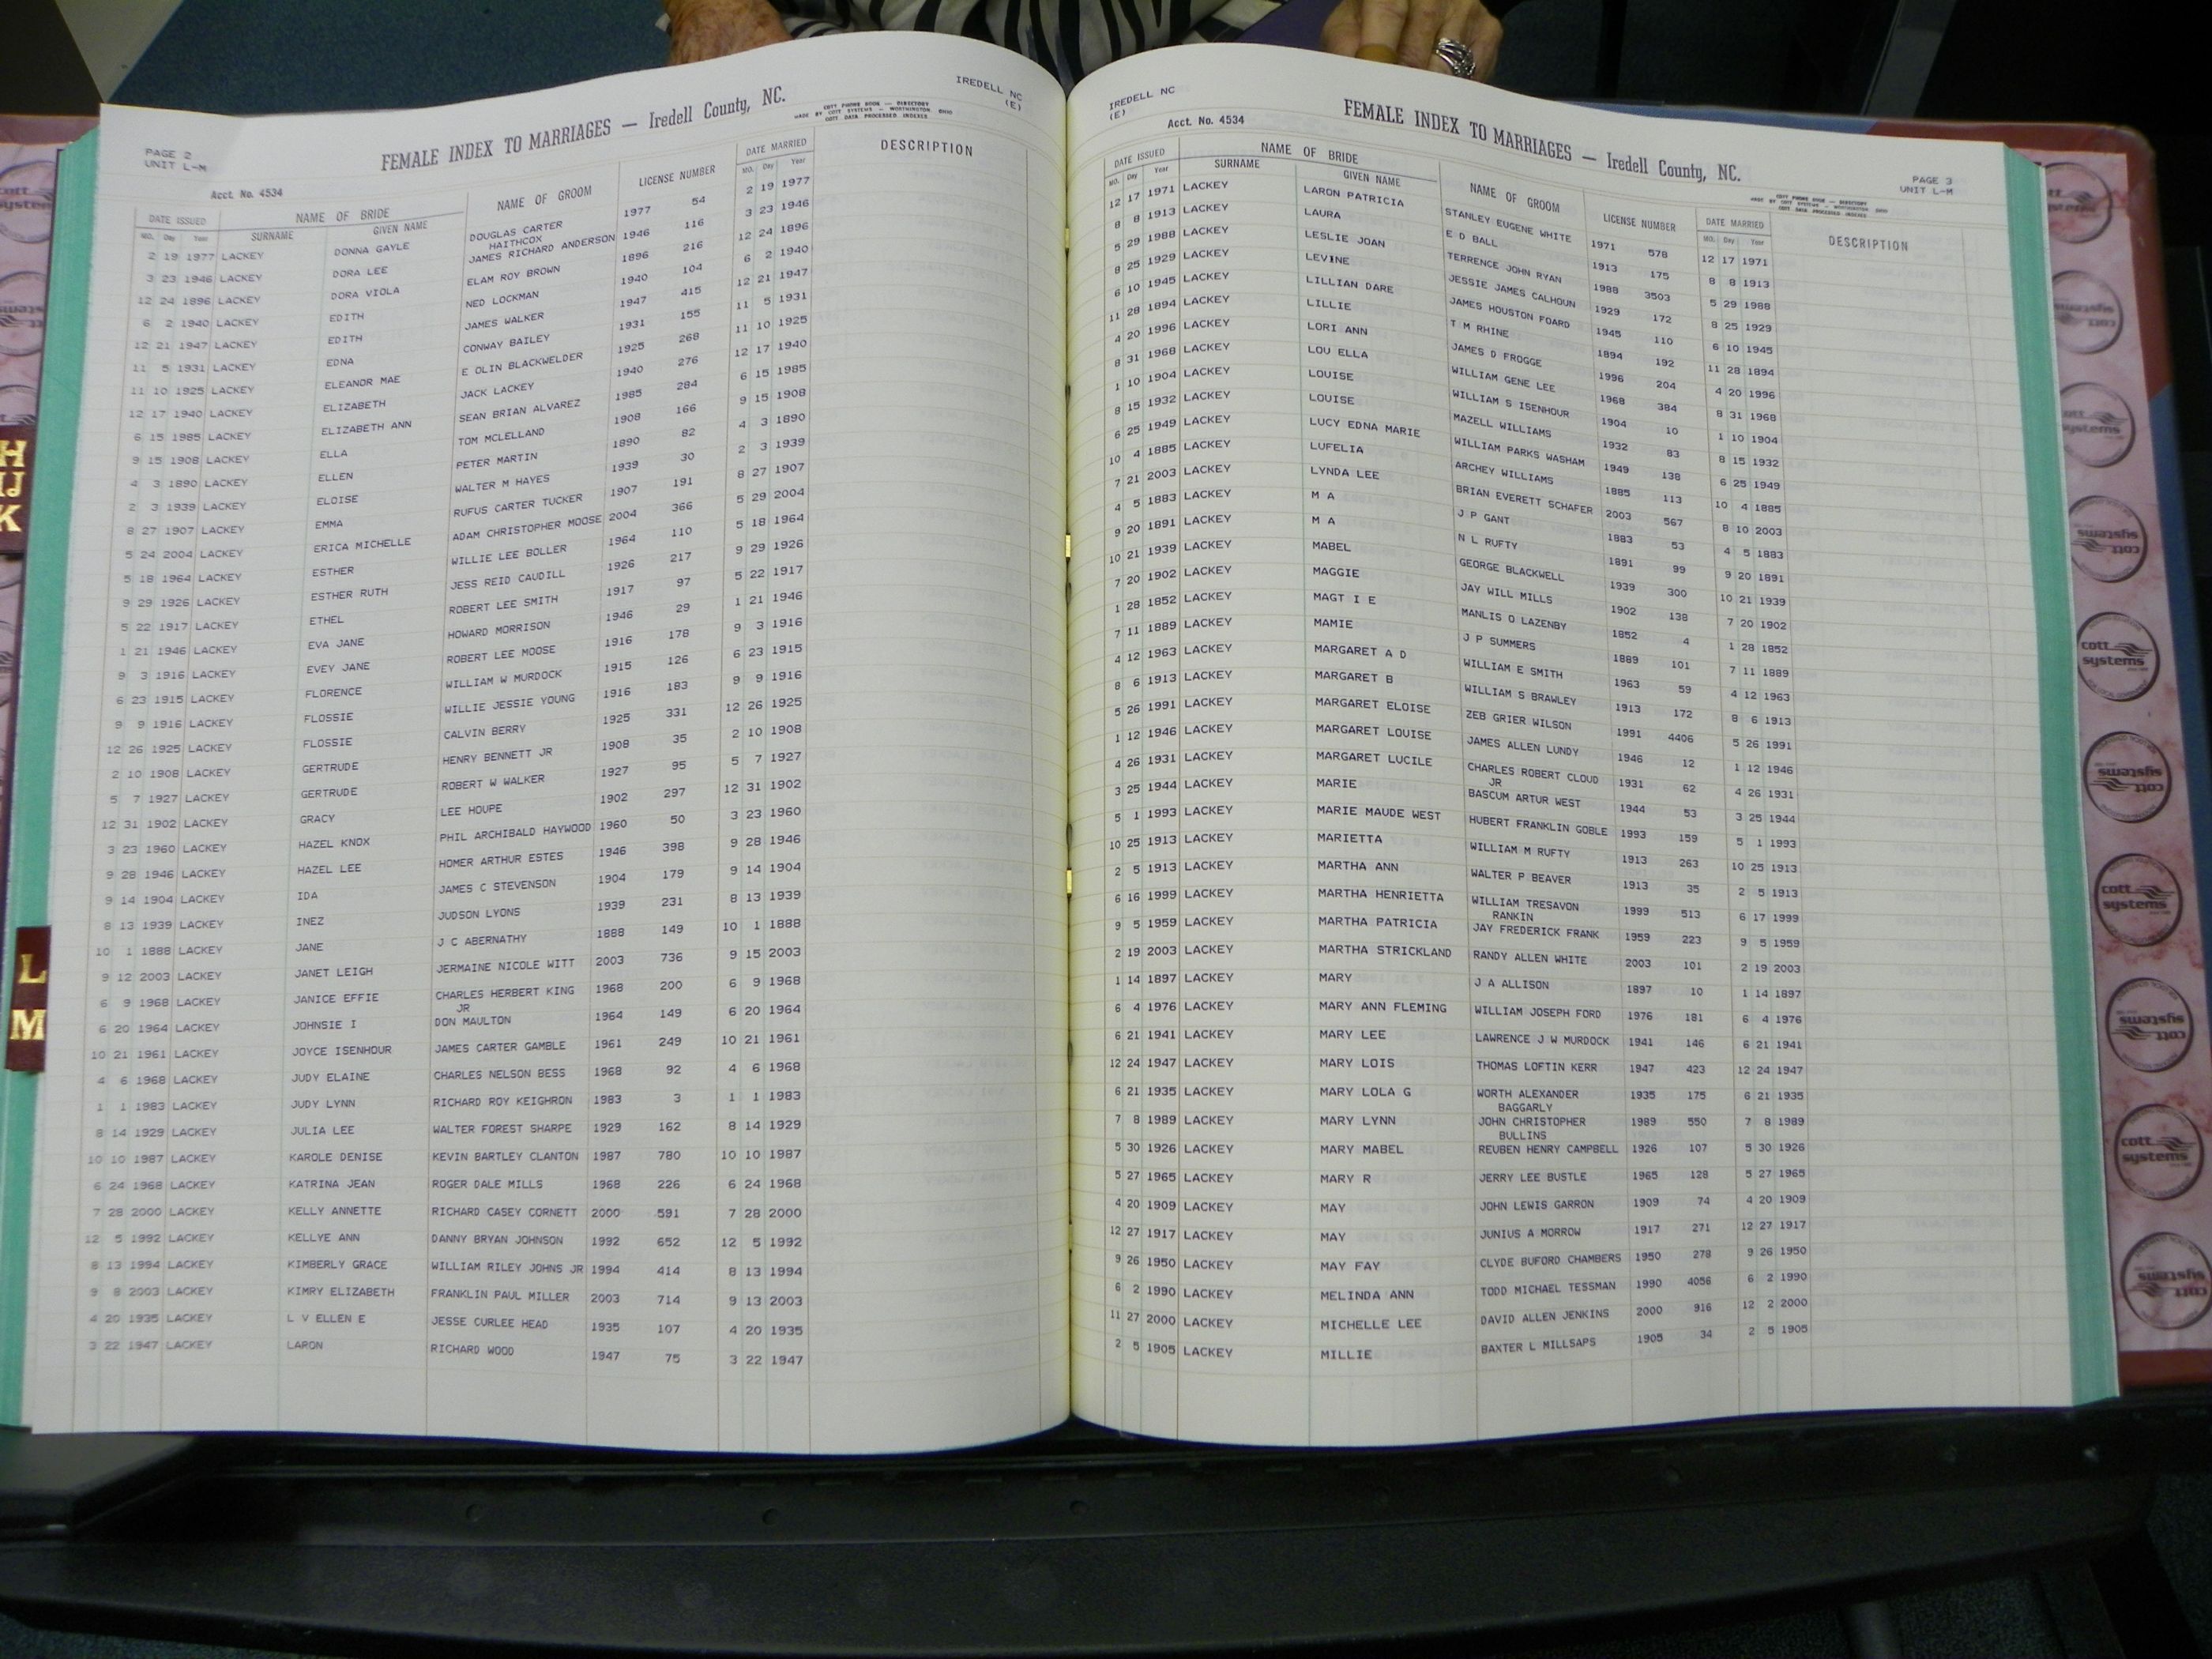 IREDELL NC
(E)
PAGE 2
UNIT L-M
FEMALE INDEX TO MARRIAGES — Iredell County, NC.
COTT PHONE BOOK — DIRECTORY
MADE BY COTT SYSTEMS — WORTHINGTON, OHIO
COTT DATA PROCESSED INDEXES
Acct. No. 4534
DATE ISSUED NAME OF BRIDE NAME OF GROOM LICENSE NUMBER DATE MARRIED DESCRIPTION
MO. Day Year SURNAME GIVEN NAME MO. Day Year
2 19 1977 LACKEY DONNA GAYLE DOUGLAS CARTER 1977 54 2 19 1977
HAITHCOX
3 23 1946 LACKEY DORA LEE JAMES RICHARD ANDERSON 1946 116 3 23 1946
12 24 1896 LACKEY DORA VIOLA ELAM ROY BROWN 1896 216 12 24 1896
6 2 1940 LACKEY EDITH NED LOCKMAN 1940 104 6 2 1940
12 21 1947 LACKEY EDITH JAMES WALKER 1947 415 12 21 1947
11 5 1931 LACKEY EDNA CONWAY BAILEY 1931 155 11 5 1931
11 10 1925 LACKEY ELEANOR MAE E OLIN BLACKWELDER 1925 268 11 10 1925
12 17 1940 LACKEY ELIZABETH JACK LACKEY 1940 276 12 17 1940
6 15 1985 LACKEY ELIZABETH ANN SEAN BRIAN ALVAREZ 1985 284 6 15 1985
9 15 1908 LACKEY ELLA TOM MCLELLAND 1908 166 9 15 1908
4 3 1890 LACKEY ELLEN PETER MARTIN 1890 82 4 3 1890
2 3 1939 LACKEY ELOISE WALTER M HAYES 1939 30 2 3 1939
8 27 1907 LACKEY EMMA RUFUS CARTER TUCKER 1907 191 8 27 1907
5 24 2004 LACKEY ERICA MICHELLE ADAM CHRISTOPHER MOOSE 2004 366 5 29 2004
5 18 1964 LACKEY ESTHER WILLIE LEE BOLLER 1964 110 5 18 1964
9 29 1926 LACKEY ESTHER RUTH JESS REID CAUDILL 1926 217 9 29 1926
5 22 1917 LACKEY ETHEL ROBERT LEE SMITH 1917 97 5 22 1917
1 21 1946 LACKEY EVA JANE HOWARD MORRISON 1946 29 1 21 1946
9 3 1916 LACKEY EVEY JANE ROBERT LEE MOOSE 1916 178 9 3 1916
6 23 1915 LACKEY FLORENCE WILLIAM W MURDOCK 1915 126 6 23 1915
9 9 1916 LACKEY FLOSSIE WILLIE JESSIE YOUNG 1916 183 9 9 1916
12 26 1925 LACKEY FLOSSIE CALVIN BERRY 1925 331 12 26 1925
2 10 1908 LACKEY GERTRUDE HENRY BENNETT JR 1908 35 2 10 1908
5 7 1927 LACKEY GERTRUDE ROBERT W WALKER 1927 95 5 7 1927
12 31 1902 LACKEY GRACY LEE HOUPE 1902 297 12 31 1902
3 23 1960 LACKEY HAZEL KNOX PHIL ARCHIBALD HAYWOOD 1960 50 3 23 1960
9 28 1946 LACKEY HAZEL LEE HOMER ARTHUR ESTES 1946 398 9 28 1946
9 14 1904 LACKEY IDA JAMES C STEVENSON 1904 179 9 14 1904
8 13 1939 LACKEY INEZ JUDSON LYONS 1939 231 8 13 1939
10 1 1888 LACKEY JANE J C ABERNATHY 1888 149 10 1 1888
9 12 2003 LACKEY JANET LEIGH JERMAINE NICOLE WITT 2003 736 9 15 2003
6 9 1968 LACKEY JANICE EFFIE CHARLES HERBERT KING 1968 200 6 9 1968
JR
6 20 1964 LACKEY JOHNSIE I DON MAULTON 1964 149 6 20 1964
10 21 1961 LACKEY JOYCE ISENHOUR JAMES CARTER GAMBLE 1961 249 10 21 1961
4 6 1968 LACKEY JUDY ELAINE CHARLES NELSON BESS 1968 92 4 6 1968
1 1 1983 LACKEY JUDY LYNN RICHARD ROY KEIGHRON 1983 3 1 1 1983
8 14 1929 LACKEY JULIA LEE WALTER FOREST SHARPE 1929 162 8 14 1929
10 10 1987 LACKEY KAROLE DENISE KEVIN BARTLEY CLANTON 1987 780 10 10 1987
6 24 1968 LACKEY KATRINA JEAN ROGER DALE MILLS 1968 226 6 24 1968
7 28 2000 LACKEY KELLY ANNETTE RICHARD CASEY CORNETT 2000 591 7 28 2000
12 5 1992 LACKEY KELLYE ANN DANNY BRYAN JOHNSON 1992 652 12 5 1992
8 13 1994 LACKEY KIMBERLY GRACE WILLIAM RILEY JOHNS JR 1994 414 8 13 1994
9 8 2003 LACKEY KIMRY ELIZABETH FRANKLIN PAUL MILLER 2003 714 9 13 2003
4 20 1935 LACKEY L V ELLEN E JESSE CURLEE HEAD 1935 107 4 20 1935
3 22 1947 LACKEY LARON RICHARD WOOD 1947 75 3 22 1947
IREDELL NC
(E)
Acct. No. 4534
FEMALE INDEX TO MARRIAGES — Iredell County, NC.
PAGE 3
UNIT L-M
DATE ISSUED NAME OF BRIDE NAME OF GROOM LICENSE NUMBER DATE MARRIED DESCRIPTION
MO. Day Year SURNAME GIVEN NAME MO. Day Year
12 17 1971 LACKEY LARON PATRICIA STANLEY EUGENE WHITE 1971 578 12 17 1971
8 8 1913 LACKEY LAURA E D BALL 1913 175 8 8 1913
5 29 1988 LACKEY LESLIE JOAN TERRENCE JOHN RYAN 1988 3503 5 29 1988
8 25 1929 LACKEY LEVINE JESSIE JAMES CALHOUN 1929 172 8 25 1929
6 10 1945 LACKEY LILLIAN DARE JAMES HOUSTON FOARD 1945 110 6 10 1945
11 28 1894 LACKEY LILLIE T M RHINE 1894 192 11 28 1894
4 20 1996 LACKEY LORI ANN JAMES D FROGGE 1996 204 4 20 1996
8 31 1968 LACKEY LOU ELLA WILLIAM GENE LEE 1968 384 8 31 1968
1 10 1904 LACKEY LOUISE WILLIAM S ISENHOUR 1904 10 1 10 1904
8 15 1932 LACKEY LOUISE MAZELL WILLIAMS 1932 83 8 15 1932
6 25 1949 LACKEY LUCY EDNA MARIE WILLIAM PARKS WASHAM 1949 138 6 25 1949
10 4 1885 LACKEY LUFELIA ARCHEY WILLIAMS 1885 113 10 4 1885
7 21 2003 LACKEY LYNDA LEE BRIAN EVERETT SCHAFER 2003 567 8 10 2003
4 5 1883 LACKEY M A J P GANT 1883 53 4 5 1883
9 20 1891 LACKEY M A N L RUFTY 1891 99 9 20 1891
10 21 1939 LACKEY MABEL GEORGE BLACKWELL 1939 300 10 21 1939
7 20 1902 LACKEY MAGGIE JAY WILL MILLS 1902 138 7 20 1902
1 28 1852 LACKEY MAGT I E MANLIS O LAZENBY 1852 4 1 28 1852
7 11 1889 LACKEY MAMIE J P SUMMERS 1889 101 7 11 1889
4 12 1963 LACKEY MARGARET A D WILLIAM E SMITH 1963 59 4 12 1963
8 6 1913 LACKEY MARGARET B WILLIAM S BRAWLEY 1913 172 8 6 1913
5 26 1991 LACKEY MARGARET ELOISE ZEB GRIER WILSON 1991 4406 5 26 1991
1 12 1946 LACKEY MARGARET LOUISE JAMES ALLEN LUNDY 1946 12 1 12 1946
4 26 1931 LACKEY MARGARET LUCILE CHARLES ROBERT CLOUD 1931 62 4 26 1931
JR
3 25 1944 LACKEY MARIE BASCUM ARTUR WEST 1944 53 3 25 1944
5 1 1993 LACKEY MARIE MAUDE WEST HUBERT FRANKLIN GOBLE 1993 159 5 1 1993
10 25 1913 LACKEY MARIETTA WILLIAM M RUFTY 1913 263 10 25 1913
2 5 1913 LACKEY MARTHA ANN WALTER P BEAVER 1913 35 2 5 1913
6 16 1999 LACKEY MARTHA HENRIETTA WILLIAM TRESAVON 1999 513 6 17 1999
RANKIN
9 5 1959 LACKEY MARTHA PATRICIA JAY FREDERICK FRANK 1959 223 9 5 1959
2 19 2003 LACKEY MARTHA STRICKLAND RANDY ALLEN WHITE 2003 101 2 19 2003
1 14 1897 LACKEY MARY J A ALLISON 1897 10 1 14 1897
6 4 1976 LACKEY MARY ANN FLEMING WILLIAM JOSEPH FORD 1976 181 6 4 1976
6 21 1941 LACKEY MARY LEE LAWRENCE J W MURDOCK 1941 146 6 21 1941
12 24 1947 LACKEY MARY LOIS THOMAS LOFTIN KERR 1947 423 12 24 1947
6 21 1935 LACKEY MARY LOLA G WORTH ALEXANDER 1935 175 6 21 1935
BAGGARLY
7 8 1989 LACKEY MARY LYNN JOHN CHRISTOPHER 1989 550 7 8 1989
BULLINS
5 30 1926 LACKEY MARY MABEL REUBEN HENRY CAMPBELL 1926 107 5 30 1926
5 27 1965 LACKEY MARY R JERRY LEE BUSTLE 1965 128 5 27 1965
4 20 1909 LACKEY MAY JOHN LEWIS GARRON 1909 74 4 20 1909
12 27 1917 LACKEY MAY JUNIUS A MORROW 1917 271 12 27 1917
9 26 1950 LACKEY MAY FAY CLYDE BUFORD CHAMBERS 1950 278 9 26 1950
6 2 1990 LACKEY MELINDA ANN TODD MICHAEL TESSMAN 1990 4056 6 2 1990
11 27 2000 LACKEY MICHELLE LEE DAVID ALLEN JENKINS 2000 916 12 2 2000
2 5 1905 LACKEY MILLIE BAXTER L MILLSAPS 1905 34 2 5 1905
H
IJ
K
L
M
cott
systems
cott
systems
cott
systems
cott
systems